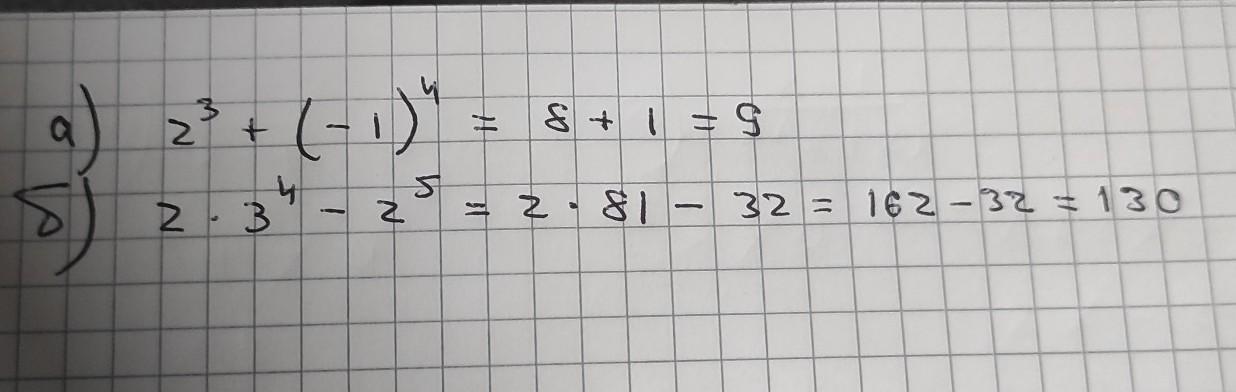 а) 2³ + (-1)⁴ = 8 + 1 = 9
б) 2 · 3⁴ - 2⁵ = 2 · 81 - 32 = 162 - 32 = 130